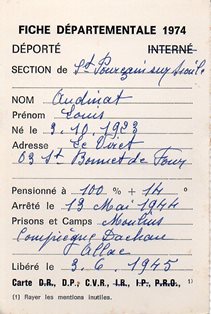 FICHE DÉPARTEMENTALE 1974
DÉPORTÉ INTERNÉ
SECTION de St Pourçain sur Sioule
NOM Audinat
Prénom Louis
Né le 3.10.1923
Adresse Le Viret
03 St Bonnet de Four
Pensionné à 100 % + 14 °
Arrêté le 13 Mai 1944
Prisons et Camps Moulins
Compiègne Dachau
Allac
Libéré le 3.6.1945
Carte D.R., D.P., C.V.R., I.R., I.P., P.R.O., 1)
1) Rayer les mentions inutiles.